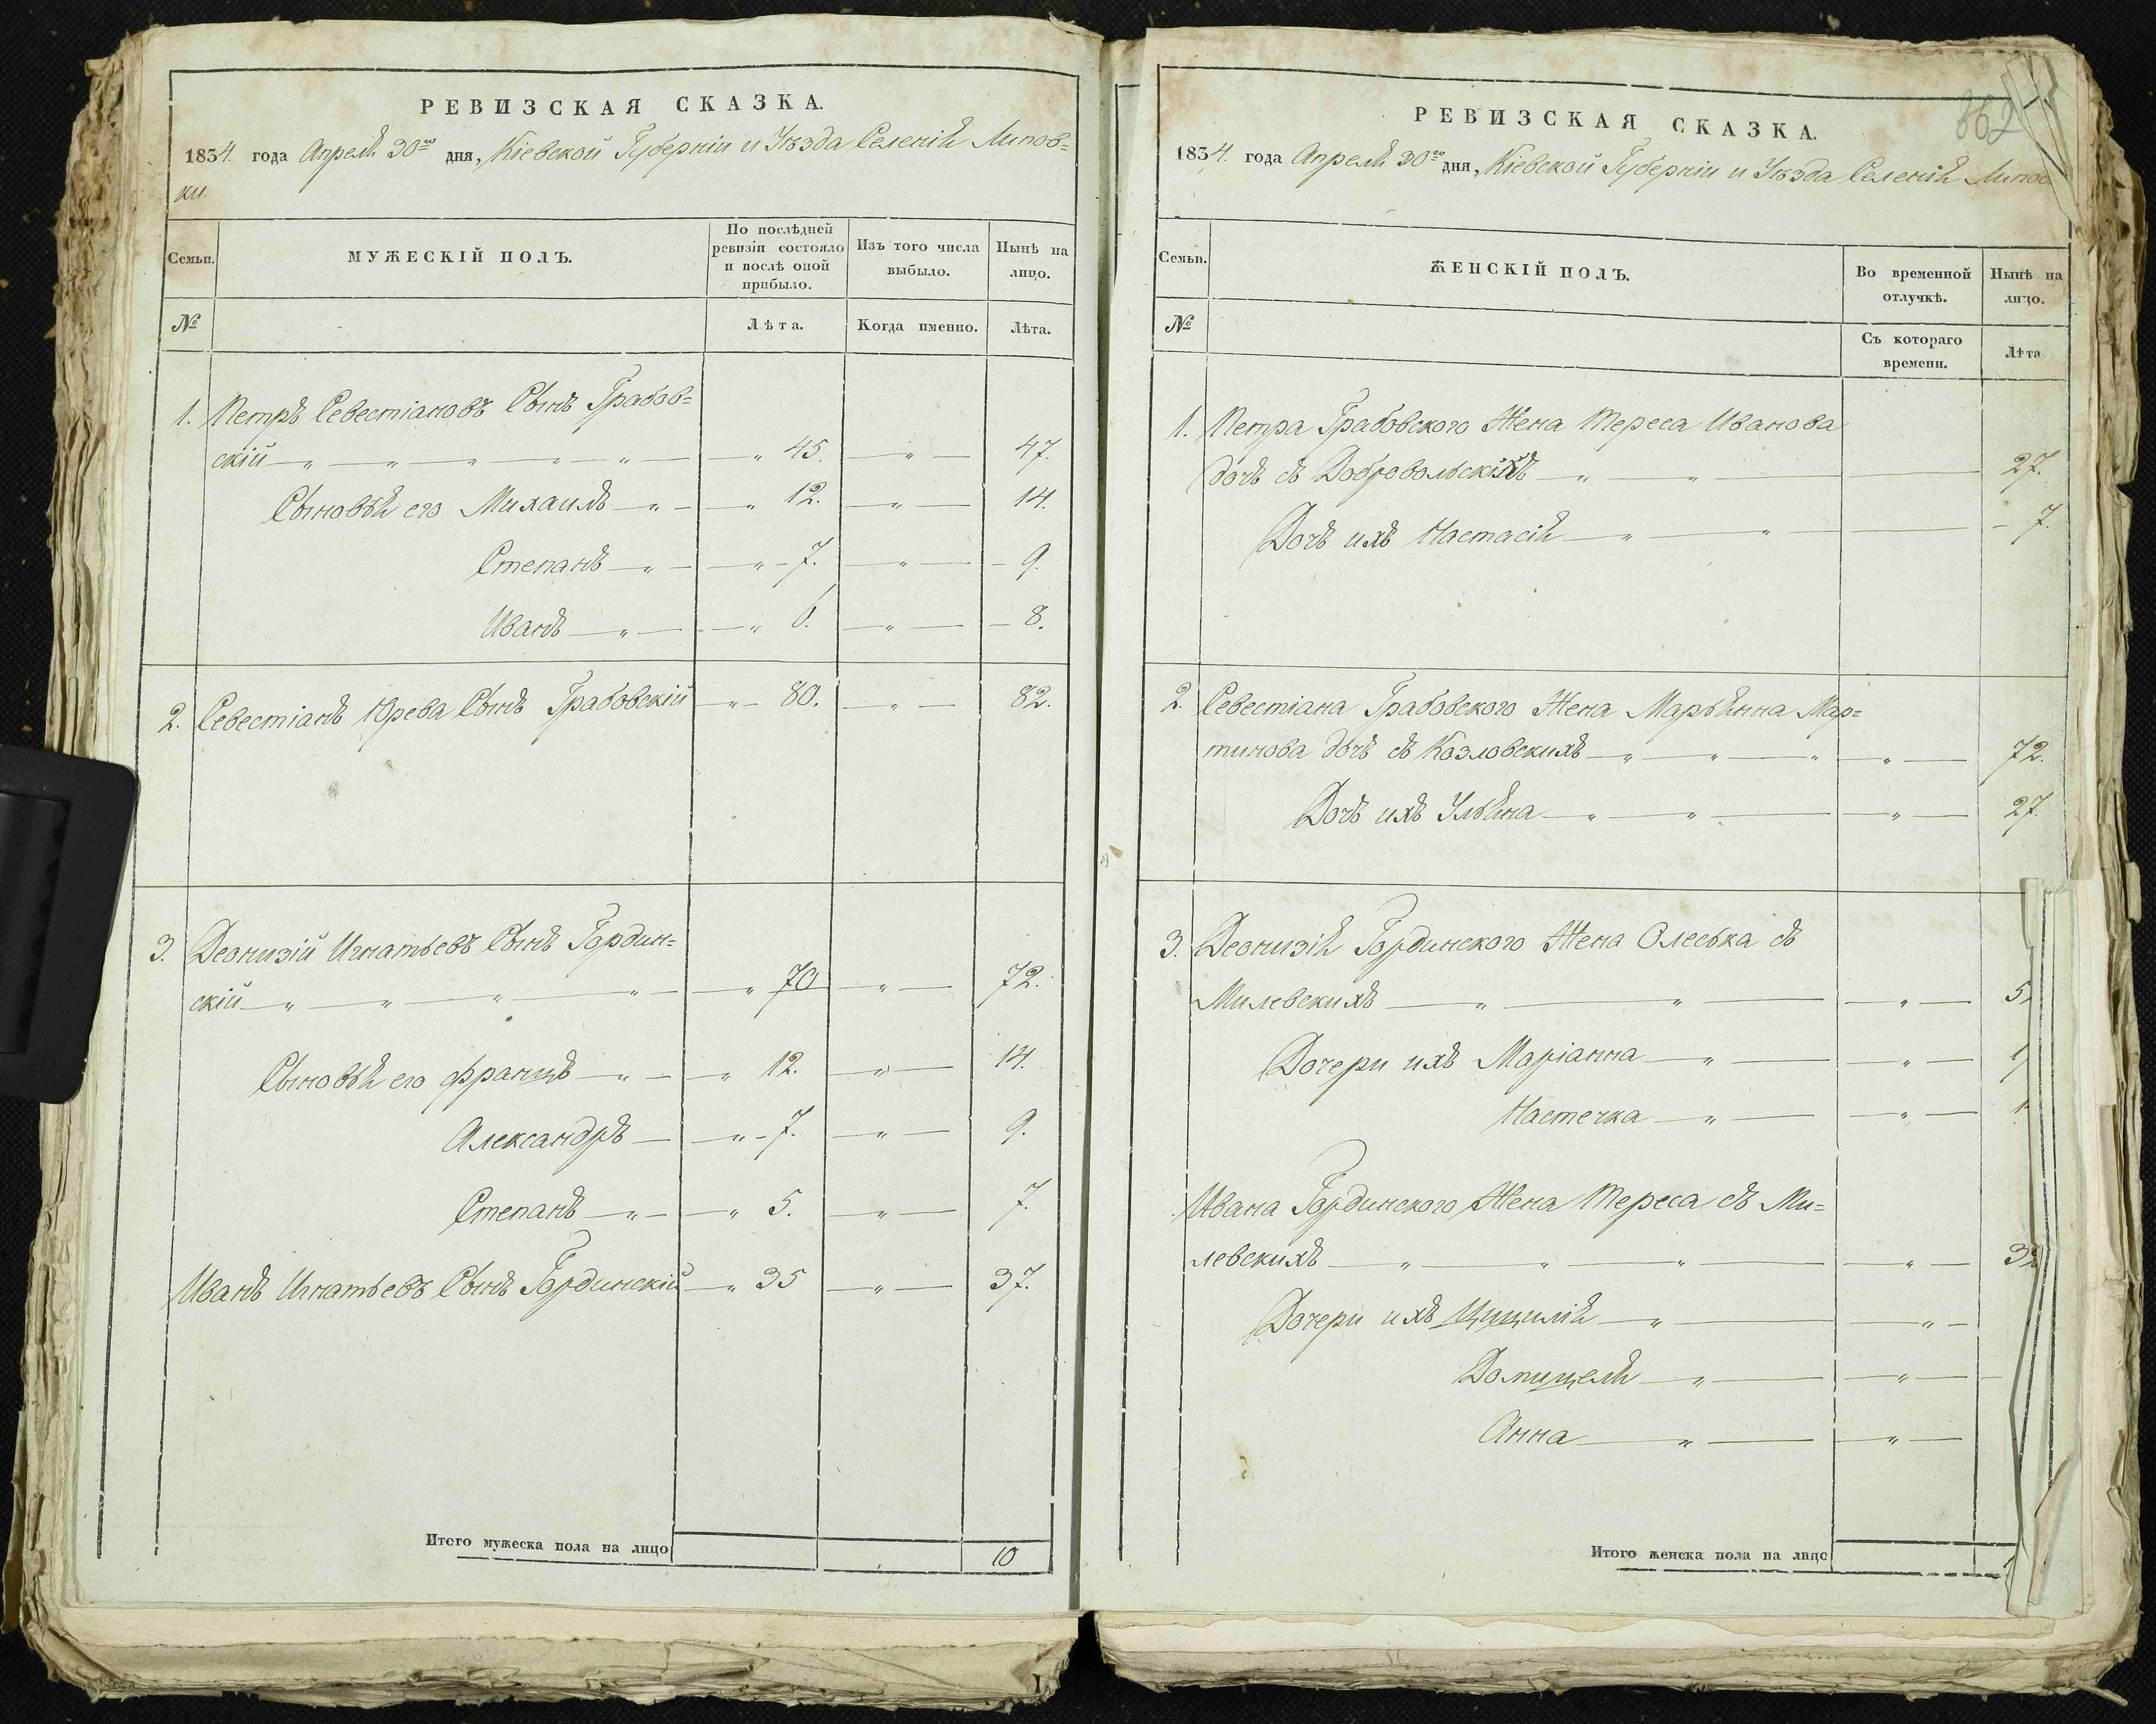 РЕВИЗСКАЯ СКАЗКА.
1834. года Апреля 30го дня, Кіевской Губерніи и Уѣзда Селенія Липов=
ки.
Семьи.
МУЖЕСКІЙ ПОЛЪ.
По послѣдней ревизіи состояло и послѣ оной прибыло.
Изъ того числа выбыло.
Нынѣ на лицо.
№
Лѣта.
Когда именно.
Лѣта.
1. Петръ Севестіановъ Сынъ Грабов=
скій 45. 47.
Сыновья его Михаилъ 12. 14.
Степанъ 7. 9.
Иванъ 6. 8.
2. Севестіанъ Юрева Сынъ Грабовскій 80. 82.
3. Деонизій Игнатьевъ Сынъ Гордин=
скій 70 72.
Сыновья его Францъ 12. 14.
Александръ 7. 9.
Степанъ 5. 7.
Иванъ Игнатьевъ Сынъ Гординскій 35 37.
Итого мужеска пола на лицо 10
362
РЕВИЗСКАЯ СКАЗКА.
1834. года Апреля 30го дня, Кіевской Губерніи и Уѣзда Селенія Липов
Семьи.
ЖЕНСКІЙ ПОЛЪ.
Во временной отлучкѣ.
Нынѣ на лицо.
№
Съ котораго времени.
Лѣта
1. Петра Грабовского Жена Тереса Иванова
дочь съ Добровольскихъ 27.
Дочь ихъ Настасія 7.
2. Севестіана Грабовского Жена Марьянна Мар=
тинова дочь съ Козловскихъ 72.
Дочь ихъ Ульяна 27.
3. Деонизія Гординского Жена Олеська съ
Милевскихъ
Дочери ихъ Маріанна
Настечка
Ивана Гординского Жена Тереса съ Ми=
левскихъ
Дочери ихъ Цицилія
Домицеля
Анна
Итого женска пола на лицо